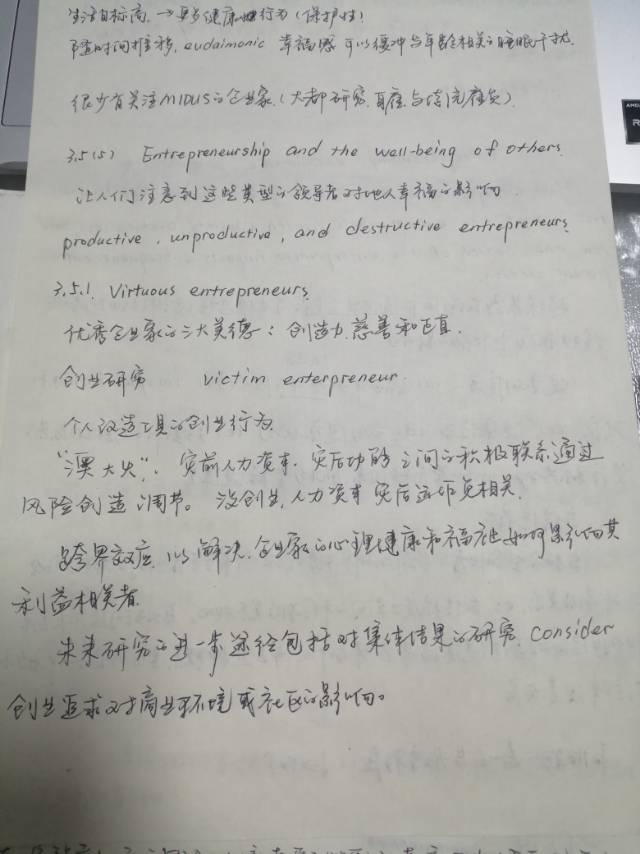 生活目标高,→更多健康性行为(保护性)
随时间推移, eudaimonic 幸福感 可以缓冲与年龄相关的睡眠干扰.
很少有关注MIDUS的企业家.(大都研究 雇主与
3.5(5) Entrepreneurship and the well-being of others.
让人们注意到这些类型的领导者对他人幸福的影响
productive, unproductive, and destructive entrepreneurs.
3.5.1. Virtuous entrepreneurs.
优秀企业家的三大美德: 创造力.慈善和正直.
创业研究 victim enterpreneur.
个人改造工具的创业行为.
"澳大火", 灾前人力资本, 灾后功能之间的积极联系通过
风险创造调节。没创业,人力资本灾后运作负相关.
跨界效应, 以解决.企业家的心理健康和福祉如何影响其
利益相关者.
未来研究的进一步途径包括对集体结果的研究. consider
创业追求对商业环境或社区的影响。